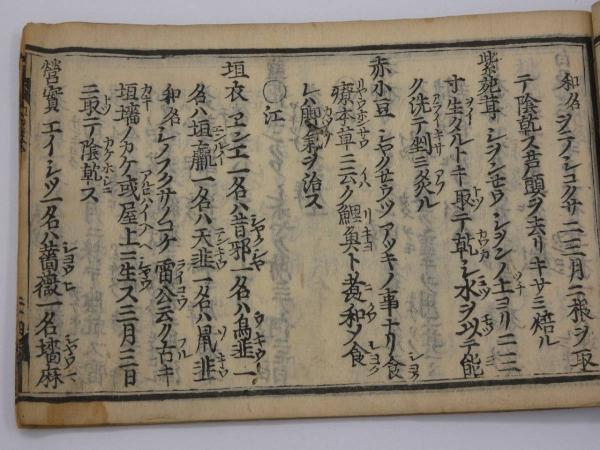 和名ヲニノシコクサ二三月ニ根ヲ取
テ陰乾ス芦頭ヲ去リキサミ焙ル
紫菀茸 シヲンセウ シヲンノ土ヨリ二三
寸生クルトキ取テ乾シ水ヲツケテ能
ク洗テ剉ミ炙ル
赤小豆 シヤクセウヅ アツキノ事ナリ食
療本草ニ云ク鯉魚ト煑和ソ食
レハ脚氣ヲ治ス
○江
垣衣 エンエ 一名ハ昔邪一名ハ烏韭一
名ハ垣蠃一名ハ天韭一名ハ鼠韭
和名シノフクサノコケ 雷公云ク古キ
垣墻ノカケ或屋上ニ生ス三月三日
ニ取テ陰乾ス
營實 エイシツ 一名ハ薔薇一名墻麻